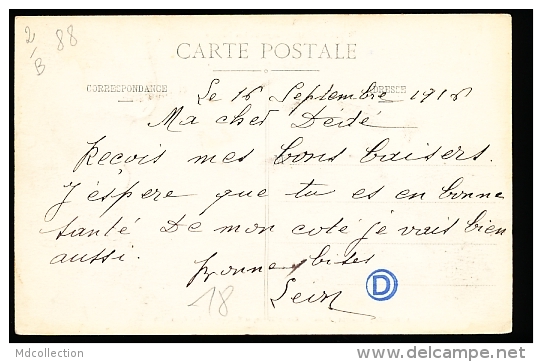 2/B 88
CARTE POSTALE
CORRESPONDANCE ADRESSE
Le 16 Septembre 1916
Ma cher Dédé
Reçois mes bons baisers.
J'éspere que tu es en bonne
santé De mon coté je vais bien
aussi. bonne bises
18 D
Mdcollection delcampe.net